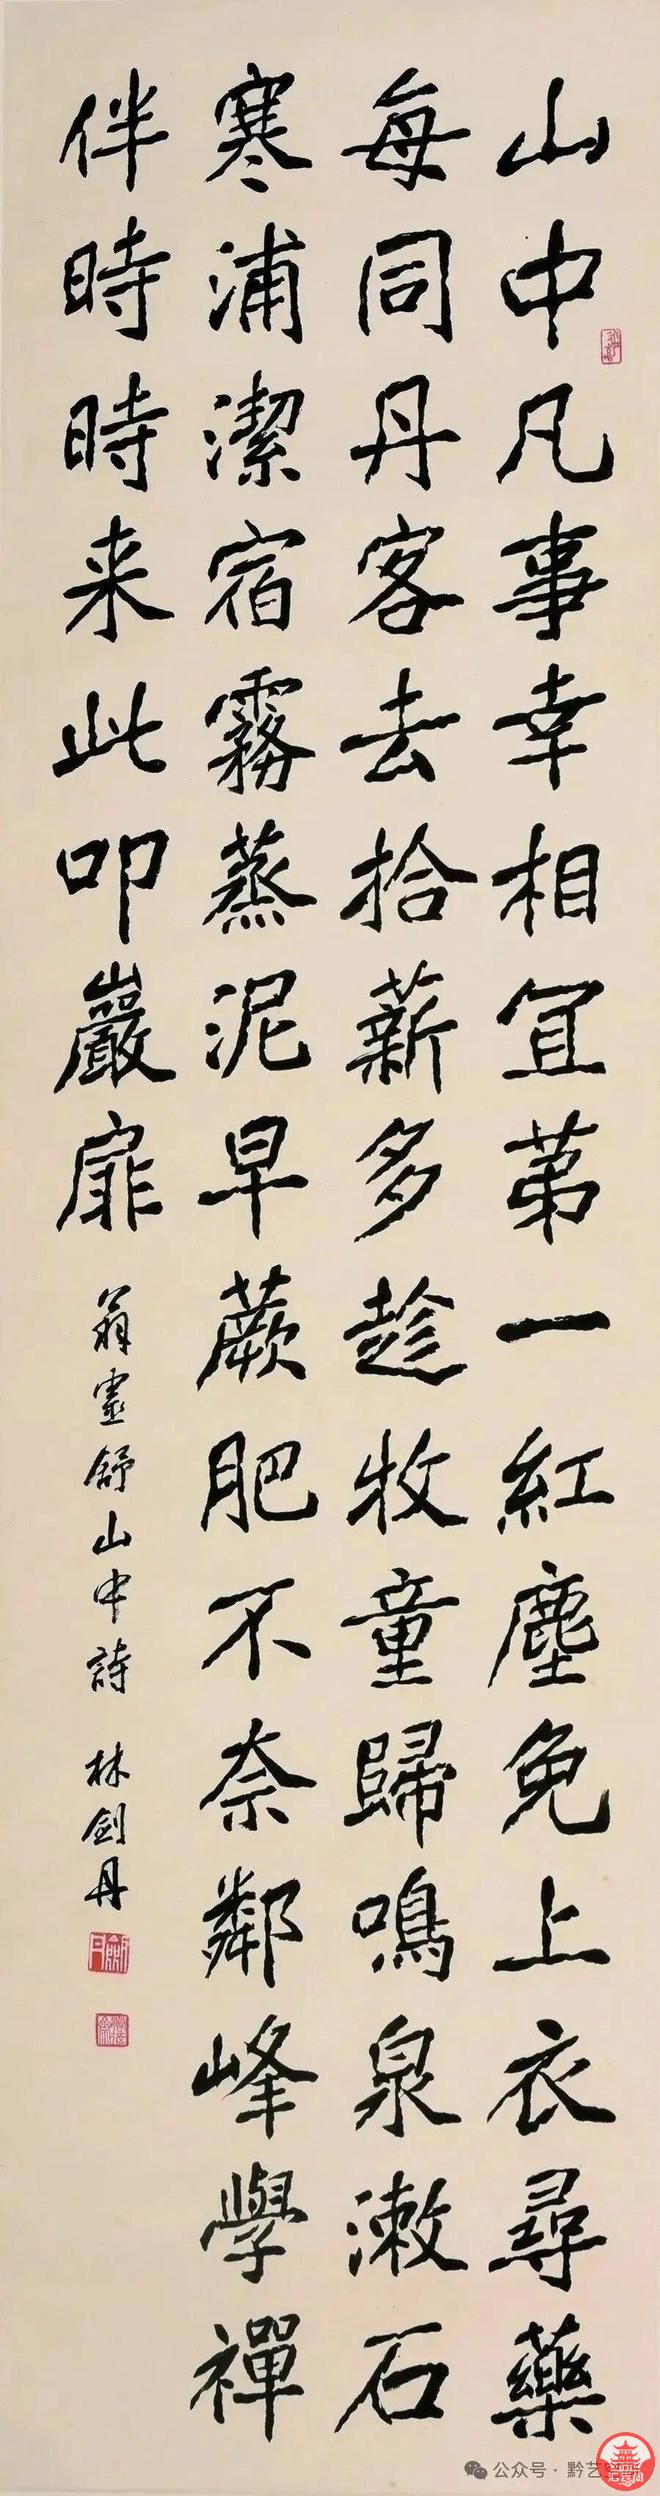 山中凡事幸相宜苐一紅塵免上衣尋藥
每同丹客去拾薪多趁牧童歸鳴泉漱石
寒浦潔宿霧蒸泥早蕨肥不奈鄰峰學禪
伴時時来此叩巖扉
翁靈舒山中詩 林劍丹
公众号·黔艺